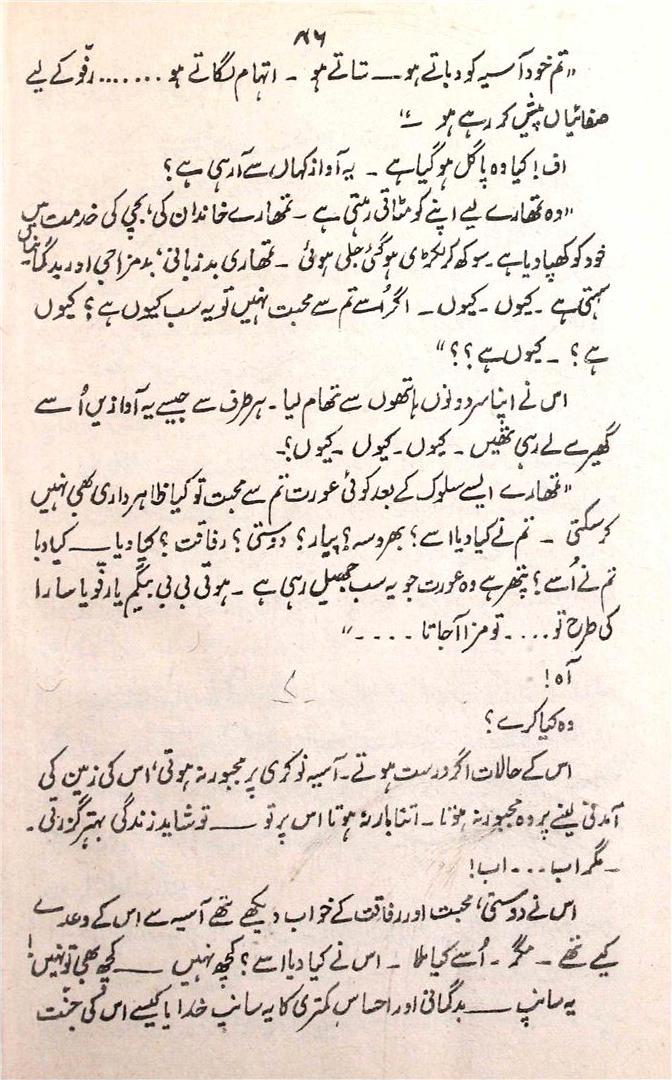 ۸۶
"تم خود آسیہ کو دباتے ہو ــــ ستاتے ہو ۔ اتہام لگاتے ہو ....... رفّو کے لیے
صفائیاں پیش کر رہے ہو ۔"
اف! کیا وہ پاگل ہو گیا ہے ۔ یہ آواز کہاں سے آ رہی ہے؟
"وہ تمھارے لیے اپنے کو مٹاتی رہتی ہے ۔ تمھارے خاندان کی، بچی کی خدمت میں
خود کو کھپا دیا ہے ۔ سوکھ کر لکڑی ہو گئی جلی ہوئی ۔ تمھاری بدزبانی، بدمزاجی اور بدگمانیاں
سہتی ہے ۔ کیوں ۔ کیوں ۔ اگر اُسے تم سے محبت نہیں تو یہ سب کیوں ہے؟ کیوں
ہے؟ ۔ کیوں ہے؟؟"
اس نے اپنا سر دونوں ہاتھوں سے تھام لیا ۔ ہر طرف سے جیسے یہ آوازیں اُسے
گھیرے لے رہی تھیں ۔ کیوں ۔ کیوں ۔ کیوں؟ ۔
"تمھارے ایسے سلوک کے بعد کوئی عورت تم سے محبت تو کیا ظاہرداری بھی نہیں
کر سکتی ۔ تم نے کیا دیا اسے؟ بھروسہ؟ پیار؟ دوستی؟ رفاقت؟ کیا دیا ــــ کیا دیا
تم نے اُسے؟ پتھر ہے وہ عورت جو یہ سب جھیل رہی ہے ۔ ہوتی بی بی بیگم یا رفّو یا سارا
کی طرح تو .... تو مزا آ جاتا ...."
آہ!
وہ کیا کرے؟
اس کے حالات اگر درست ہوتے ۔ آسیہ نوکری پر مجبور نہ ہوتی، اس کی زمین کی
آمدنی لینے پر وہ مجبور نہ ہوتا ۔ اتنا بار نہ ہوتا اس پر تو ــــ تو شاید زندگی بہتر گزرتی ۔
۔ مگر اب ... اب!
اس نے دوستی، محبت اور رفاقت کے خواب دیکھے تھے آسیہ سے اس کے وعدے
کیے تھے ۔ مگر ۔ اُسے کیا ملا ۔ اس نے کیا دیا اسے؟ کچھ نہیں ــــ کچھ بھی تو نہیں!
یہ سانپ ــــ بدگمانی اور احساس کمتری کا یہ سانپ خدایا کیسے اس کی جنّت